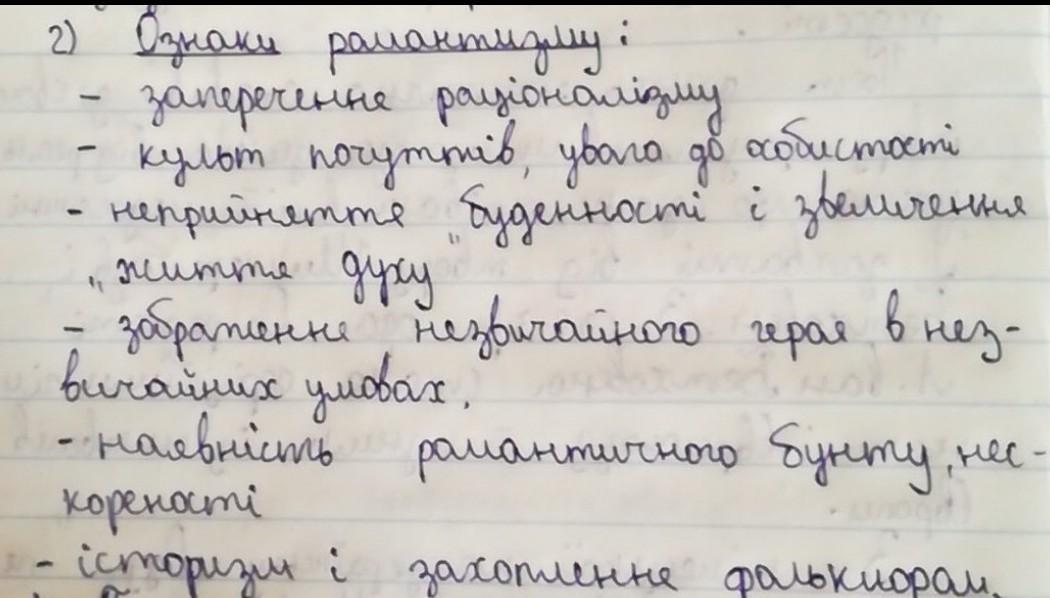 2) Ознаки романтизму:
- заперечення раціоналізму
- культ почуттів, увага до особистості
- неприйняття буденності і звеличення
„життя духу"
- зображення незвичайного героя в нез-
вичайних умовах.
- наявність романтичного бунту, нес-
кореності
- історизм і захоплення фольклором.